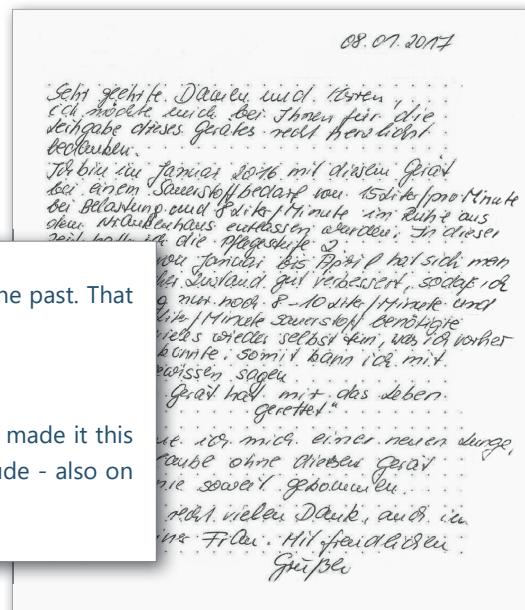 08.01.2017
Sehr geehrte Damen und Herren,
ich möchte mich bei Ihnen für die
Leihgabe dieses Gerätes recht herzlichst
bedanken.
Ich bin im Januar 2016 mit diesem Gerät
bei einem Sauerstoffbedarf von 15 Liter/pro Minute
bei Belastung und 8 Liter/Minute im Ruhe aus
dem Krankenhaus entlassen worden. In dieser
die Pflegestufe 2
von Januar bis April hat sich mein
Zustand gut verbessert, sodaß ich
nur noch 8-10 Liter/Minute und
Liter/Minute Sauerstoff benötigte
vieles wieder selbst tun, was ich vorher
konnte, somit kann ich mit
sagen
Gerät hat mir das Leben
gerettet"
ich mich einer neuen Lunge,
ohne dieses Gerät
nie soweit gekommen.
recht vielen Dank, auch im
Frau. Mit freundlichen
Grüßen
he past. That
made it this
ude - also on